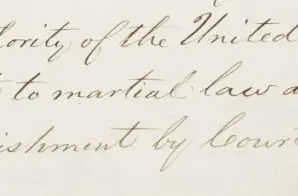 ority of the United
to martial law a
ishment by Cour